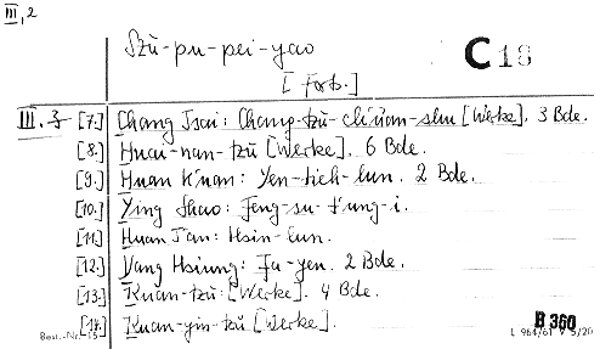 III, 2
Szŭ-pu-pei-yao C 18
[Forts.]
III. 3 [7.] Chang Tsai: Chang-tzŭ-ch'üan-shu [Werke]. 3 Bde.
[8.] Huai-nan-tzŭ [Werke]. 6 Bde.
[9.] Huan K'uan: Yen-t'ieh-lun. 2 Bde.
[10.] Ying Shao: Feng-su-t'ung-i.
[11.] Huan T'an: Hsin-lun.
[12.] Yang Hsiung: Fa-yen. 2 Bde.
[13.] Kuan-tzŭ: [Werke]. 4 Bde.
[14.] Kuan-yin-tzŭ [Werke].
Best.-Nr. 15 B 360
L 964/61 V 5/20